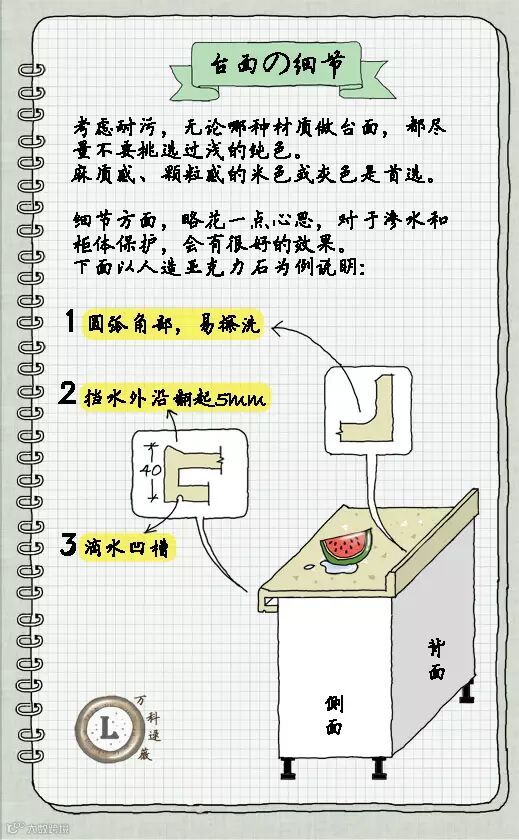 台面の细节
考虑耐污，无论哪种材质做台面，都尽
量不要挑选过浅的纯色。
麻质感、颗粒感的米色或灰色是首选。
细节方面，略花一点心思，对于渗水和
柜体保护，会有很好的效果。
下面以人造亚克力石为例说明：
1 圆弧角部，易擦洗
2 挡水外沿翻起5mm
40
3 滴水凹槽
背面
侧面
L
万科速薇
大数跨境